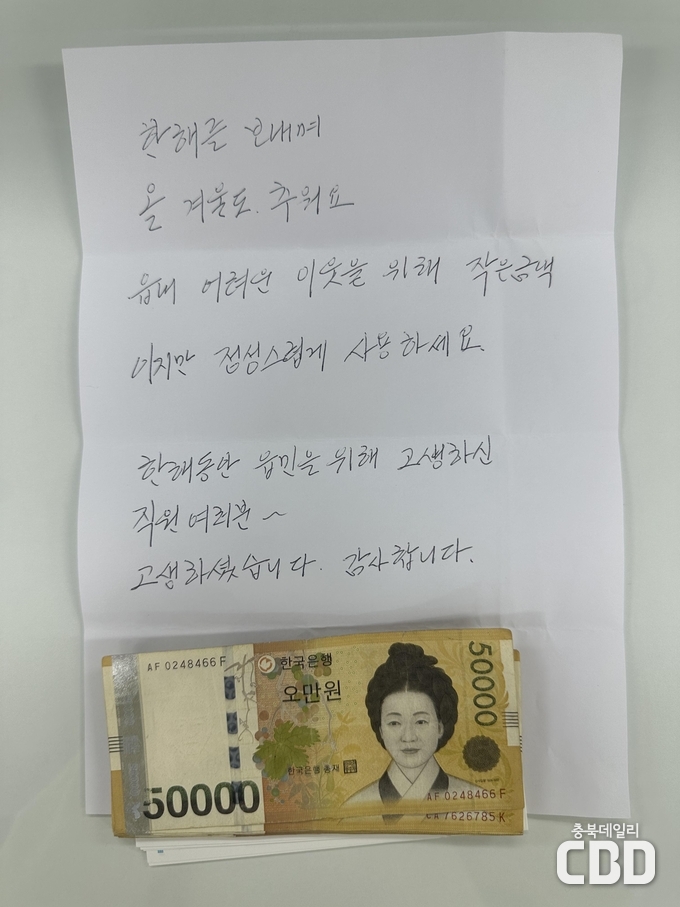 한해를 보내며
올 겨울도. 추워요
읍내 어려운 이웃을 위해 작은금액
이지만 정성스럽게 사용하세요.
한해동안 읍민을 위해 고생하신
직원여러분 ~
고생하셨습니다. 감사합니다.
AF 0248466 F
한국은행
오만원
50000
한국은행 총재
50000
AF 0248466 F
CA 7626785 K
충북데일리
CBD